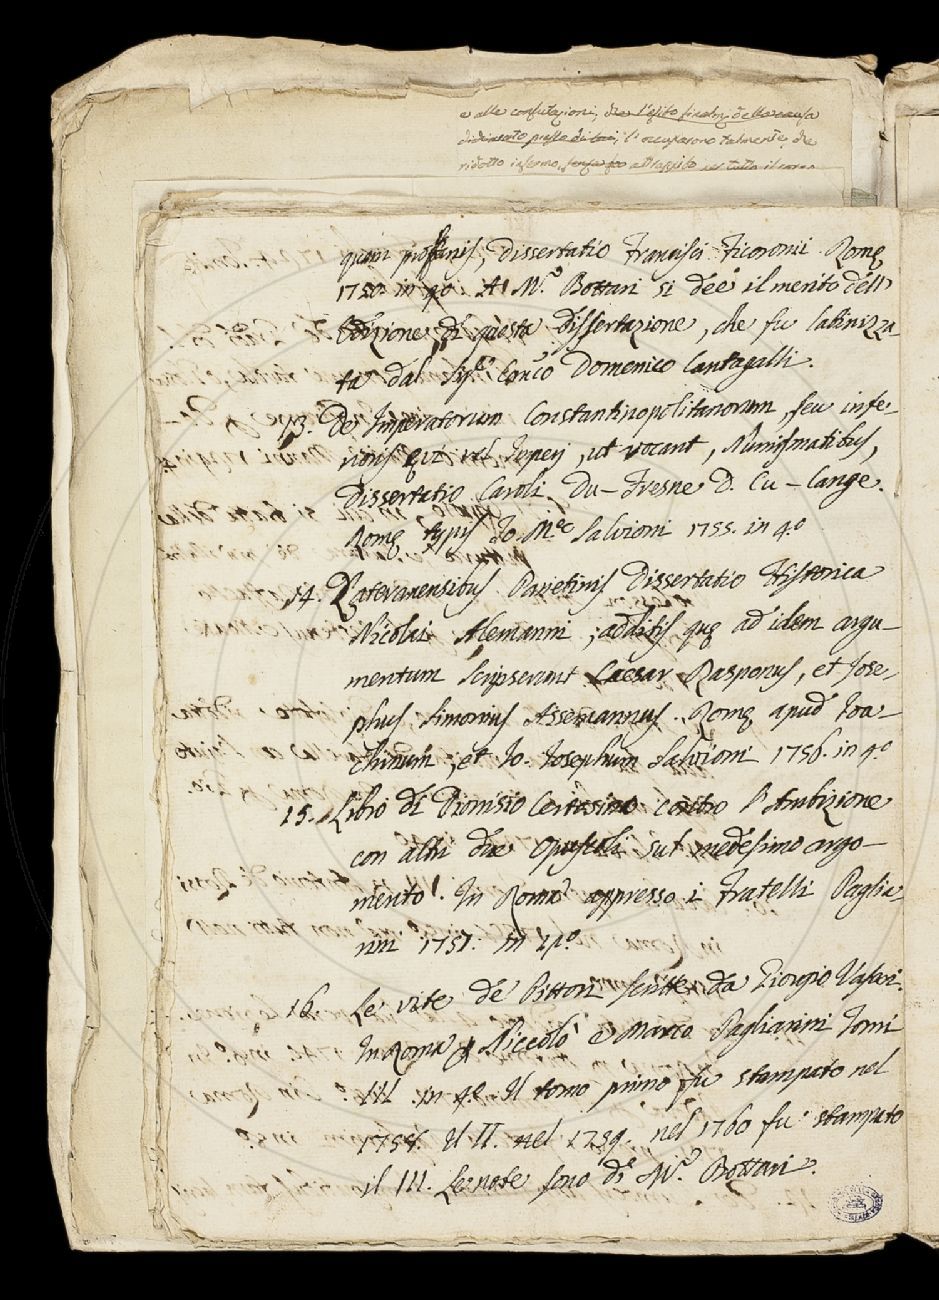 e alle confutazioni, che l'esito finale della causa
di presso di lui, l'occuparono talmente, che
ridotto infermo, attrappito in tutto il corpo
quam profanis, Dissertatio Francisci Ficoronii Romę
1750. in 4o. A M.r Bottari si deé il merito dell'
Edizione di questa Dissertazione, che fu latinizza-
ta dal Sig.r Domenico Cantagalli.
13. De Imperatorum Constantinopolitanorum, seu infe-
rioris ęvi vel Imperij, ut vocant, Numismatibus,
Dissertatio Caroli Du-Fresne D. Cu-Cange.
Romę typis Jo. M.ę Salvioni 1755. in 4.o
14. Lateranensibus Parietinis Dissertatio Historica
Nicolai Alemanni; additis quę ad idem argu-
mentum scripserunt Caesar Rasponus, et Jose-
phus Simonius Assemannus. Romę apud Joa-
chinum, et Jo. Josephum Salvioni 1756. in 4.o
15. Libro di Dionisio Certosino contro l'Ambizione
con altri due Opuscoli sul medesimo argo-
mento. In Roma appresso i Fratelli Paglia-
rini 1757. in 4.o
16. Le vite de' Pittori scritte da Giorgio Vasari.
In Roma Niccolò e Marco Pagliarini Tomi
III in 4.o Il tomo primo fu stampato nel
1758. Il II. nel 1759. nel 1760 fu stampato
il III. Le note sono di M.r Bottari.